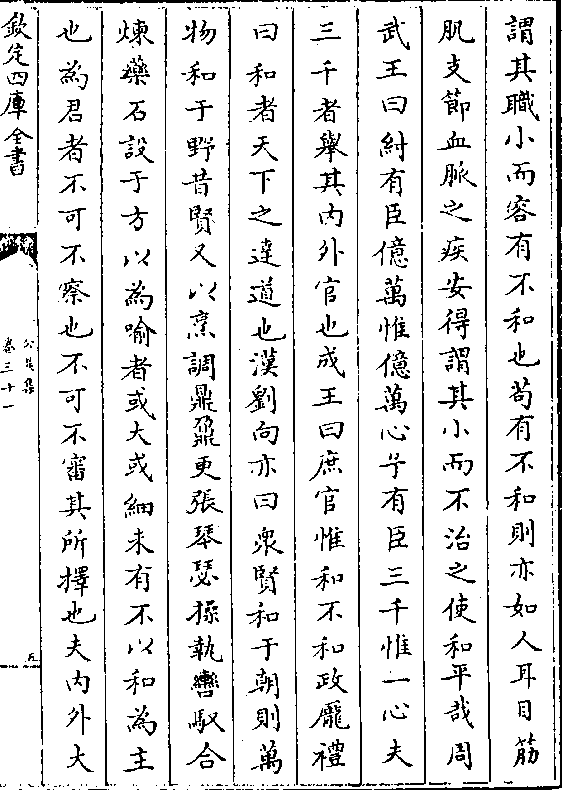 謂其職小而容有不和也苟有不和則亦如人耳目筋
肌支節血脈之疾安得謂其小而不治之使和平哉周
武王曰紂有臣億萬惟億萬心予有臣三千惟一心夫
三千者舉其內外官也成王曰庶官惟和不和政厖禮
曰和者天下之達道也漢劉向亦曰衆賢和于朝則萬
物和于野昔賢又以烹調鼎鼐更張琴瑟操執轡馭合
煉藥石設于方以為喻者或大或細未有不以和為主
也為君者不可不察也不可不審其所擇也夫內外大
欽定四庫全書
公是集
卷三十一
五